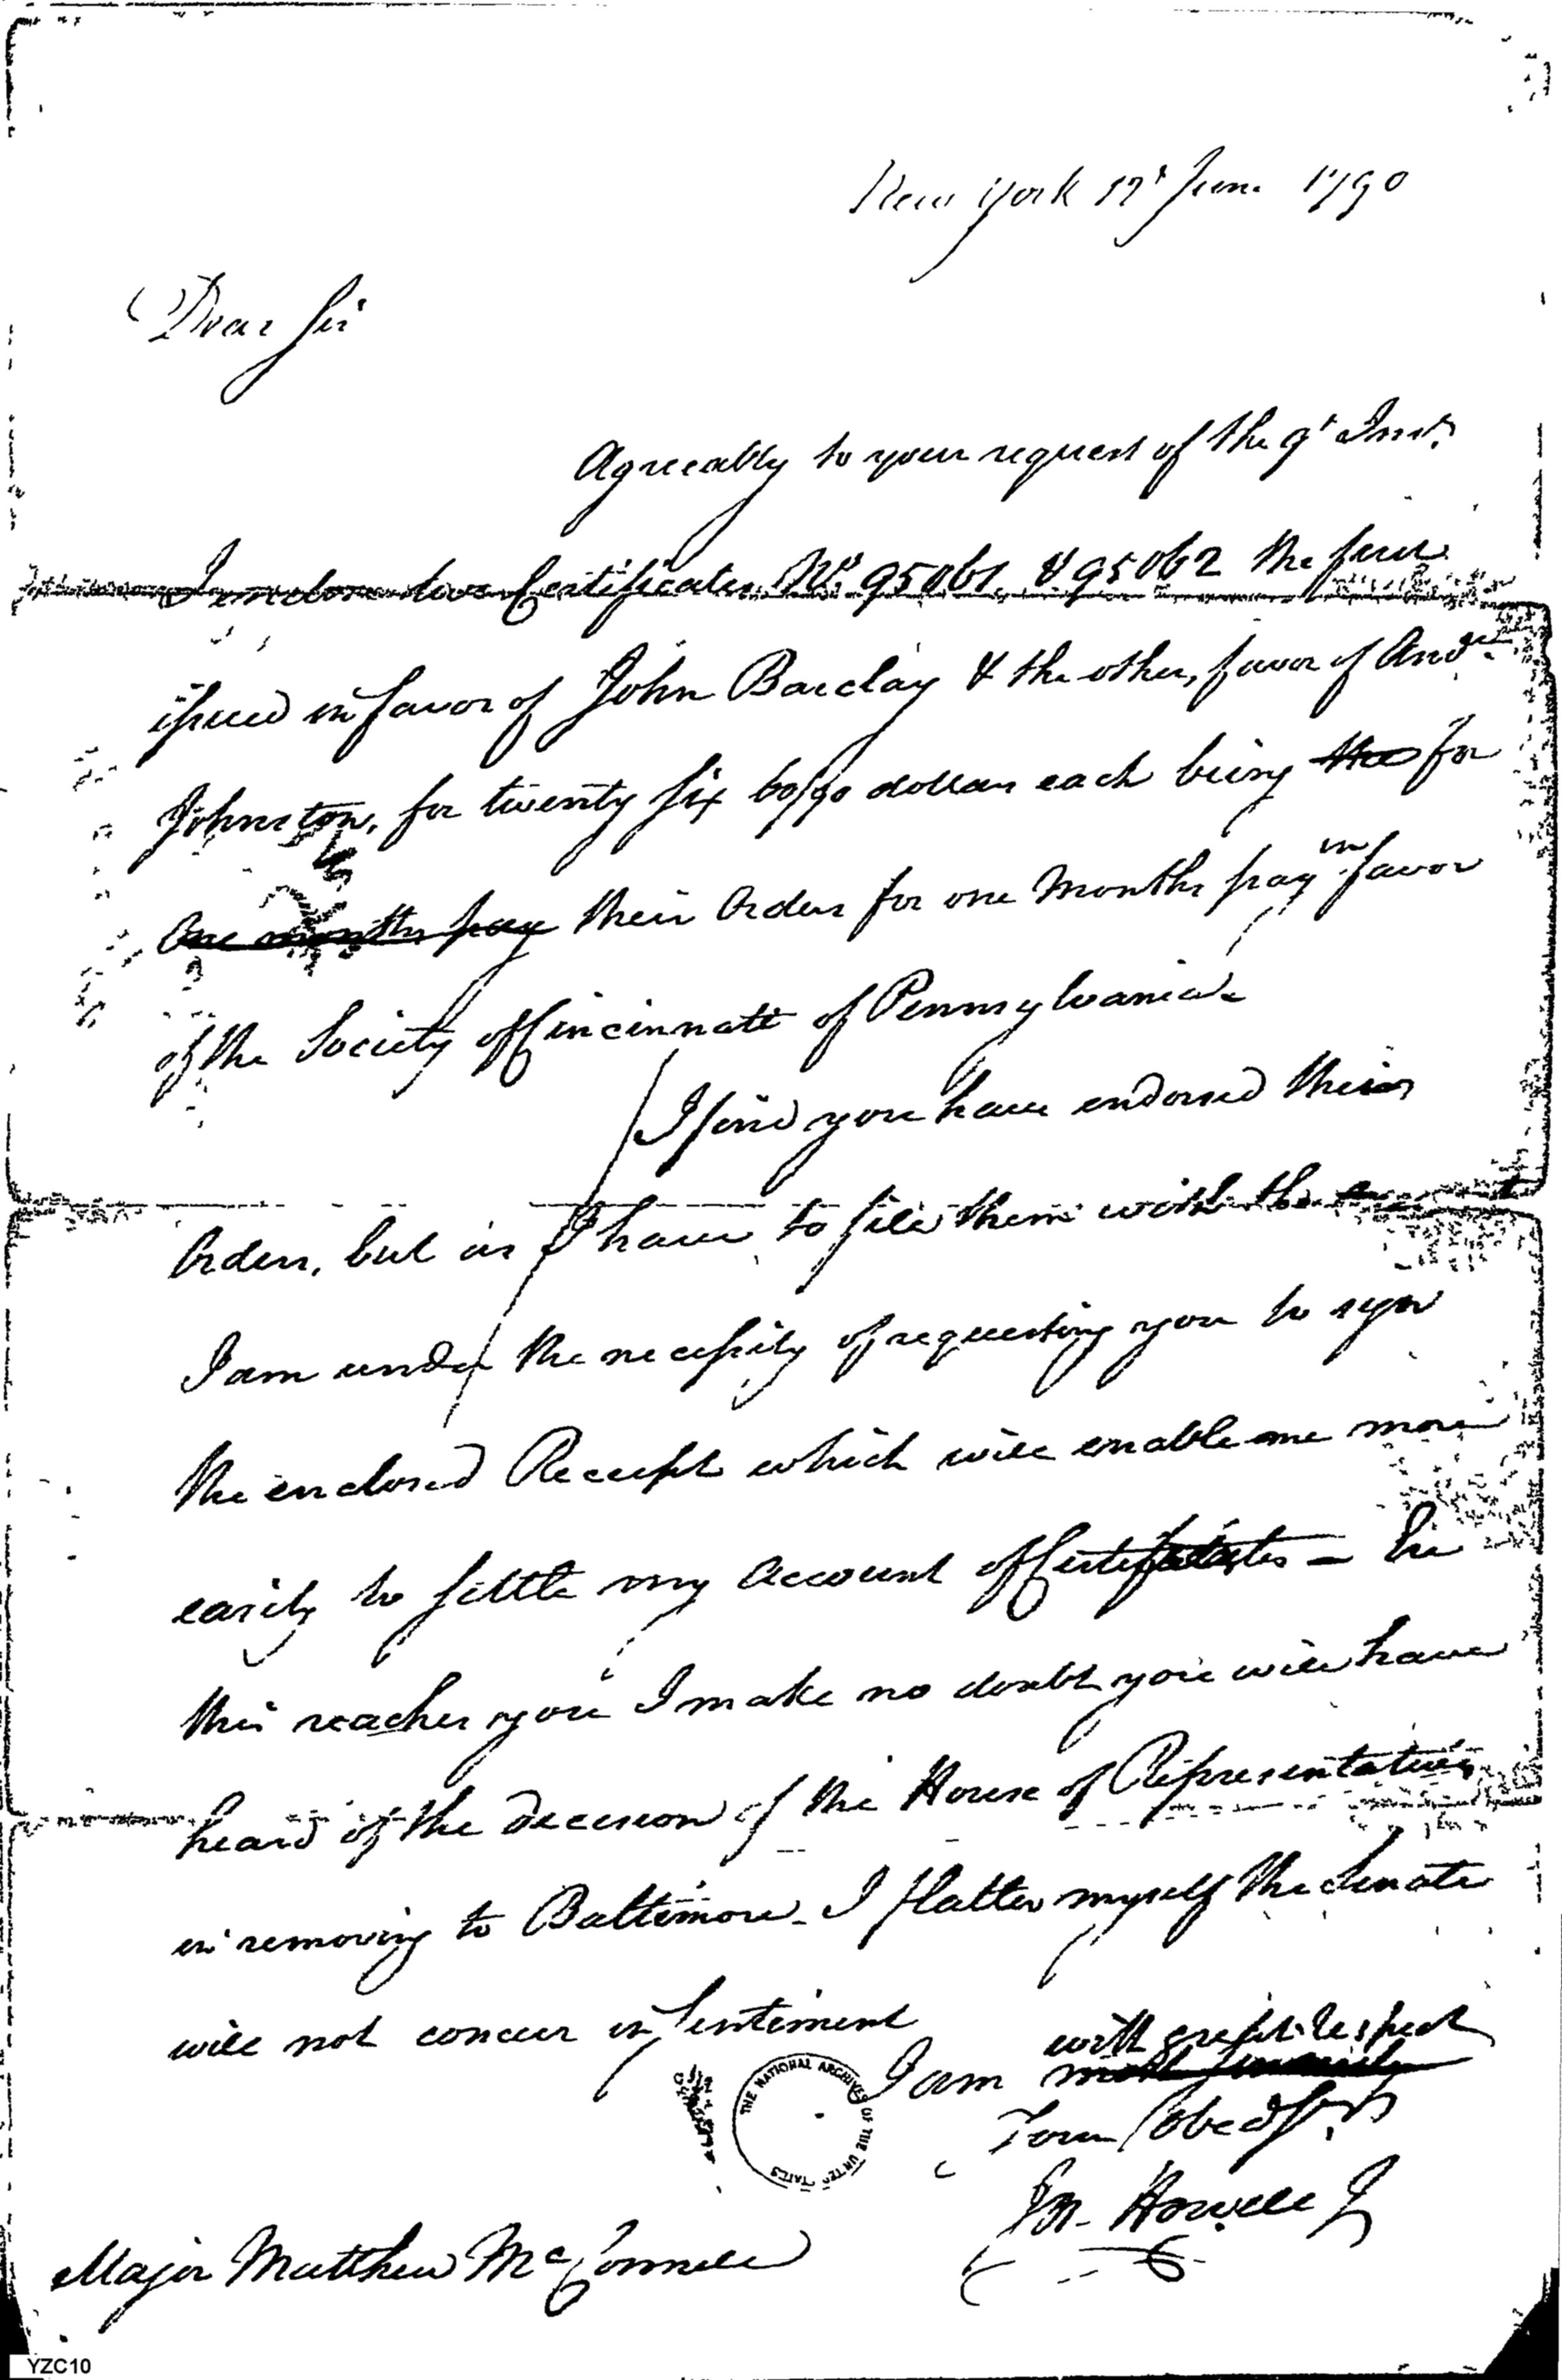 New York 17t June 1790
Dear Sir
Agreeably to your request of the 9t Inst.
I enclose two Certificates No. 95061 & 95062 the first
issued in favor of John Barclay & the other, favor of Andw.
Johnston, for twenty six 60/90 dollars each being the for
One months pay their Orders for one Months pay in favor
of the Society of Cincinnati of Pennsylvania
I find you have endorsed their
Orders, but as I have to file them with the
I am under the necessity of requesting you to sign
the enclosed Receipt which will enable me more
easily to settle my Account of Certificates – Ere
this reaches you I make no doubt you will have
heard of the decision of the House of Representatives
in removing to Baltimore – I flatter myself the Senate
will not concur in Sentiment
with great respect
I am most sincerely
Your Obed Sert
Jos. Howell Jr
Major Matthew McConnell
THE NATIONAL ARCHIVES OF THE UNITED STATES
YZC10